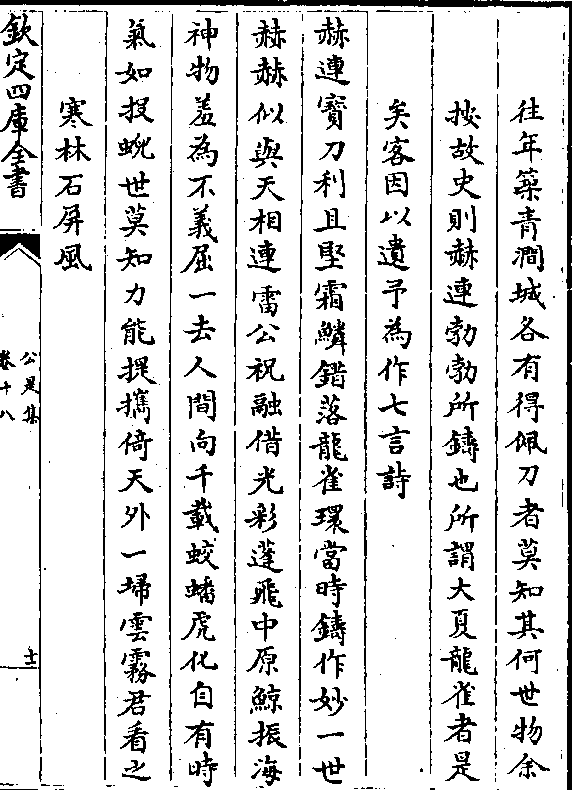 往年築青澗城各有得佩刀者莫知其何世物余
按故史則赫連勃勃所鑄也所謂大夏龍雀者是
矣客因以遺予為作七言詩
赫連寶刀利且堅霜鱗錯落龍雀環當時鑄作妙一世
赫赫似與天相連雷公祝融借光彩蓬飛中原鯨振海
神物羞為不義屈一去人間向千載蛟蟠虎化自有時
氣如投蜺世莫知力能提攜倚天外一埽雲霧君看之
寒林石屏風
欽定四庫全書
公是集
卷十八
十